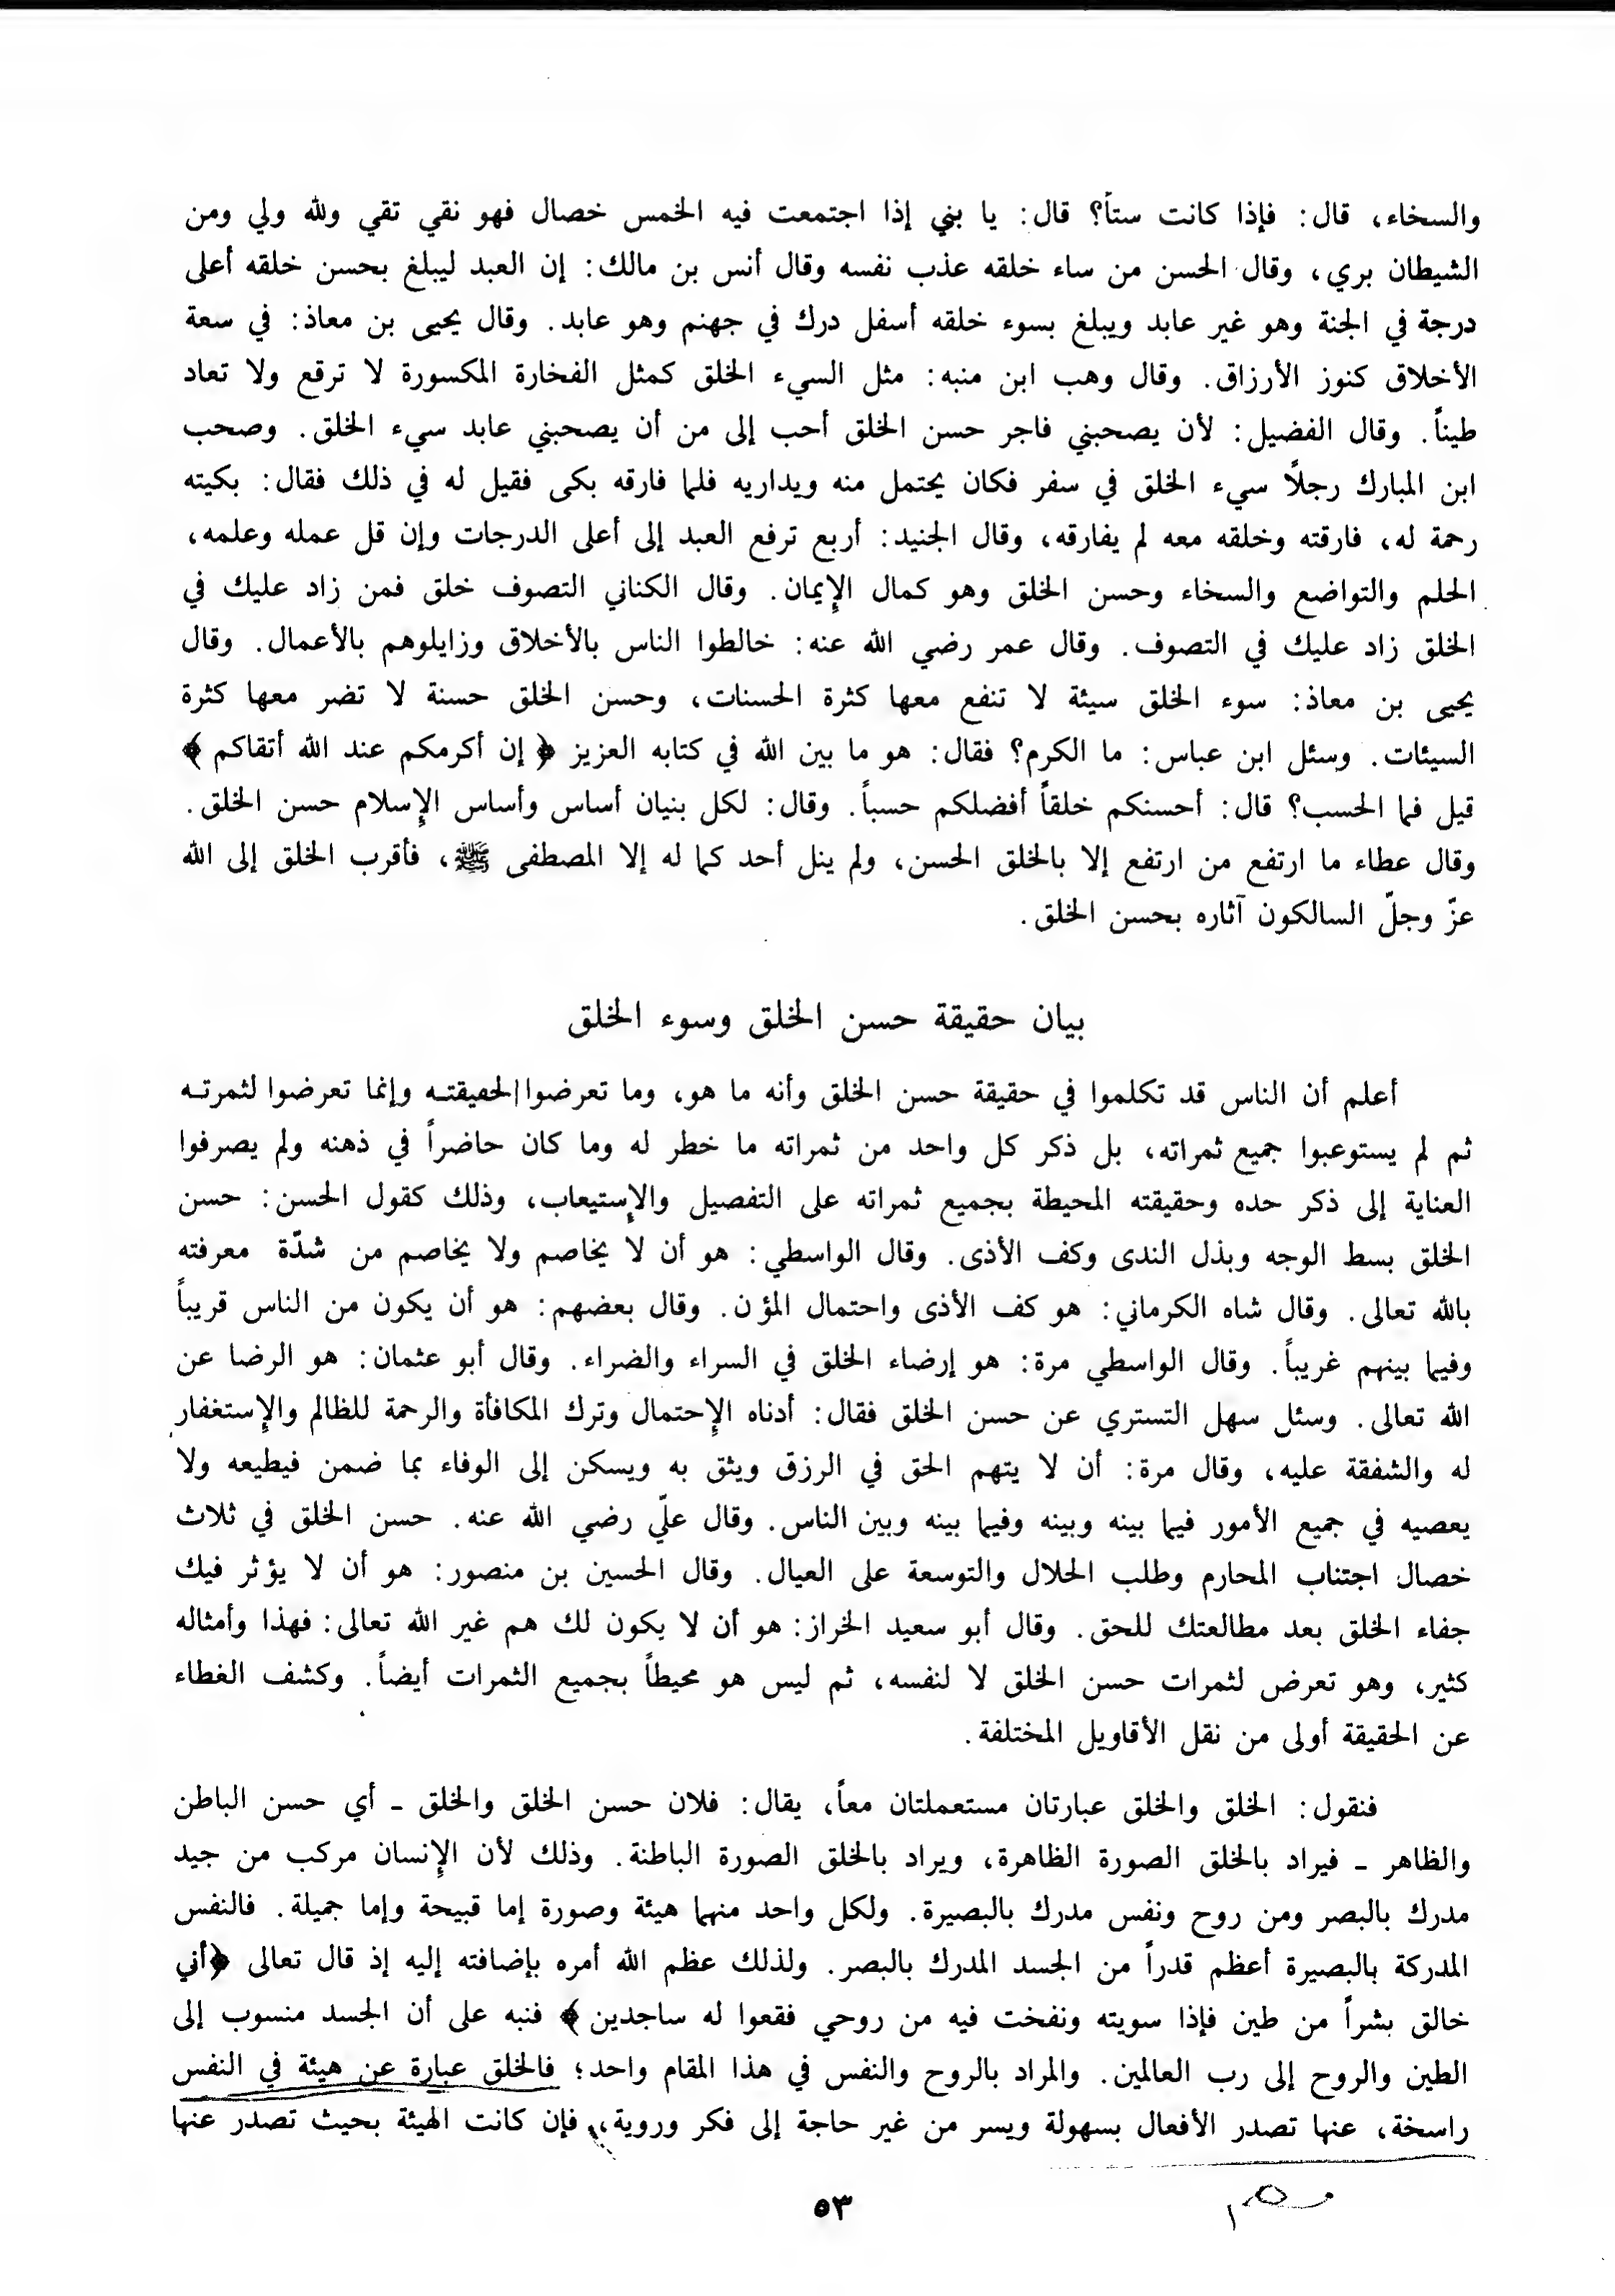 والسخاء، قال: فإذا كانت ستاً؟ قال: يا بني إذا اجتمعت فيه الخمس خصال فهو نقي تقي ولله ولي ومن
الشيطان بري، وقال الحسن من ساء خلقه عذب نفسه وقال أنس بن مالك: إن العبد ليبلغ بحسن خلقه أعلى
درجة في الجنة وهو غير عابد ويبلغ بسوء خلقه أسفل درك في جهنم وهو عابد. وقال يحيى بن معاذ: في سعة
الأخلاق كنوز الأرزاق. وقال وهب ابن منبه: مثل السيء الخلق كمثل الفخارة المكسورة لا ترقع ولا تعاد
طيناً. وقال الفضيل: لأن يصحبني فاجر حسن الخلق أحب إلى من أن يصحبني عابد سيء الخلق. وصحب
ابن المبارك رجلاً سيء الخلق في سفر فكان يحتمل منه ويداريه فلما فارقه بكى فقيل له في ذلك فقال: بكيته
رحمة له، فارقته وخلقه معه لم يفارقه، وقال الجنيد: أربع ترفع العبد إلى أعلى الدرجات وإن قل عمله وعلمه،
الحلم والتواضع والسخاء وحسن الخلق وهو كمال الإيمان. وقال الكناني التصوف خلق فمن زاد عليك في
الخلق زاد عليك في التصوف. وقال عمر رضي الله عنه: خالطوا الناس بالأخلاق وزايلوهم بالأعمال. وقال
يحيى بن معاذ: سوء الخلق سيئة لا تنفع معها كثرة الحسنات، وحسن الخلق حسنة لا تضر معها كثرة
السيئات. وسئل ابن عباس: ما الكرم؟ فقال: هو ما بين الله في كتابه العزيز ﴿ إن أكرمكم عند الله أتقاكم ﴾
قيل فما الحسب؟ قال: أحسنكم خلقاً أفضلكم حسباً. وقال: لكل بنيان أساس وأساس الإسلام حسن الخلق.
وقال عطاء ما ارتفع من ارتفع إلا بالخلق الحسن، ولم ينل أحد كما له إلا المصطفى ﷺ، فأقرب الخلق إلى الله
عزّ وجلّ السالكون آثاره بحسن الخلق.
بيان حقيقة حسن الخلق وسوء الخلق
أعلم أن الناس قد تكلموا في حقيقة حسن الخلق وأنه ما هو، وما تعرضوا لحقيقتـه وإنما تعرضوا لثمرتـه
ثم لم يستوعبوا جميع ثمراته، بل ذكر كل واحد من ثمراته ما خطر له وما كان حاضراً في ذهنه ولم يصرفوا
العناية إلى ذكر حده وحقيقته المحيطة بجميع ثمراته على التفصيل والإستيعاب، وذلك كقول الحسن: حسن
الخلق بسط الوجه وبذل الندى وكف الأذى. وقال الواسطي: هو أن لا يخاصم ولا يخاصم من شدّة معرفته
بالله تعالى. وقال شاه الكرماني: هو كف الأذى واحتمال المؤن. وقال بعضهم: هو أن يكون من الناس قريباً
وفيما بينهم غريباً. وقال الواسطي مرة: هو إرضاء الخلق في السراء والضراء. وقال أبو عثمان: هو الرضا عن
الله تعالى. وسئل سهل التستري عن حسن الخلق فقال: أدناه الإحتمال وترك المكافأة والرحمة للظالم والإستغفار
له والشفقة عليه، وقال مرة: أن لا يتهم الحق في الرزق ويثق به ويسكن إلى الوفاء بما ضمن فيطيعه ولا
يعصيه في جميع الأمور فيما بينه وبينه وفيما بينه وبين الناس. وقال علّي رضي الله عنه. حسن الخلق في ثلاث
خصال اجتناب المحارم وطلب الحلال والتوسعة على العيال. وقال الحسين بن منصور: هو أن لا يؤثر فيك
جفاء الخلق بعد مطالعتك للحق. وقال أبو سعيد الخراز: هو أن لا يكون لك هم غير الله تعالى: فهذا وأمثاله
كثير، وهو تعرض لثمرات حسن الخلق لا لنفسه، ثم ليس هو محيطاً بجميع الثمرات أيضاً. وكشف الغطاء
عن الحقيقة أولى من نقل الأقاويل المختلفة.
فنقول: الخلق والخلق عبارتان مستعملتان معاً، يقال: فلان حسن الخلق والخلق ـ أي حسن الباطن
والظاهر ـ فيراد بالخلق الصورة الظاهرة، ويراد بالخلق الصورة الباطنة. وذلك لأن الإنسان مركب من جيد
مدرك بالبصر ومن روح ونفس مدرك بالبصيرة. ولكل واحد منهما هيئة وصورة إما قبيحة وإما جميلة. فالنفس
المدركة بالبصيرة أعظم قدراً من الجسد المدرك بالبصر. ولذلك عظم الله أمره بإضافته إليه إذ قال تعالى ﴿أني
خالق بشراً من طين فإذا سويته ونفخت فيه من روحي فقعوا له ساجدين ﴾ فنبه على أن الجسد منسوب إلى
الطين والروح إلى رب العالمين. والمراد بالروح والنفس في هذا المقام واحد؛ فالخلق عبارة عن هيئة في النفس
راسخة، عنها تصدر الأفعال بسهولة ويسر من غير حاجة إلى فكر وروية، فإن كانت الهيئة بحيث تصدر عنها
٥٣